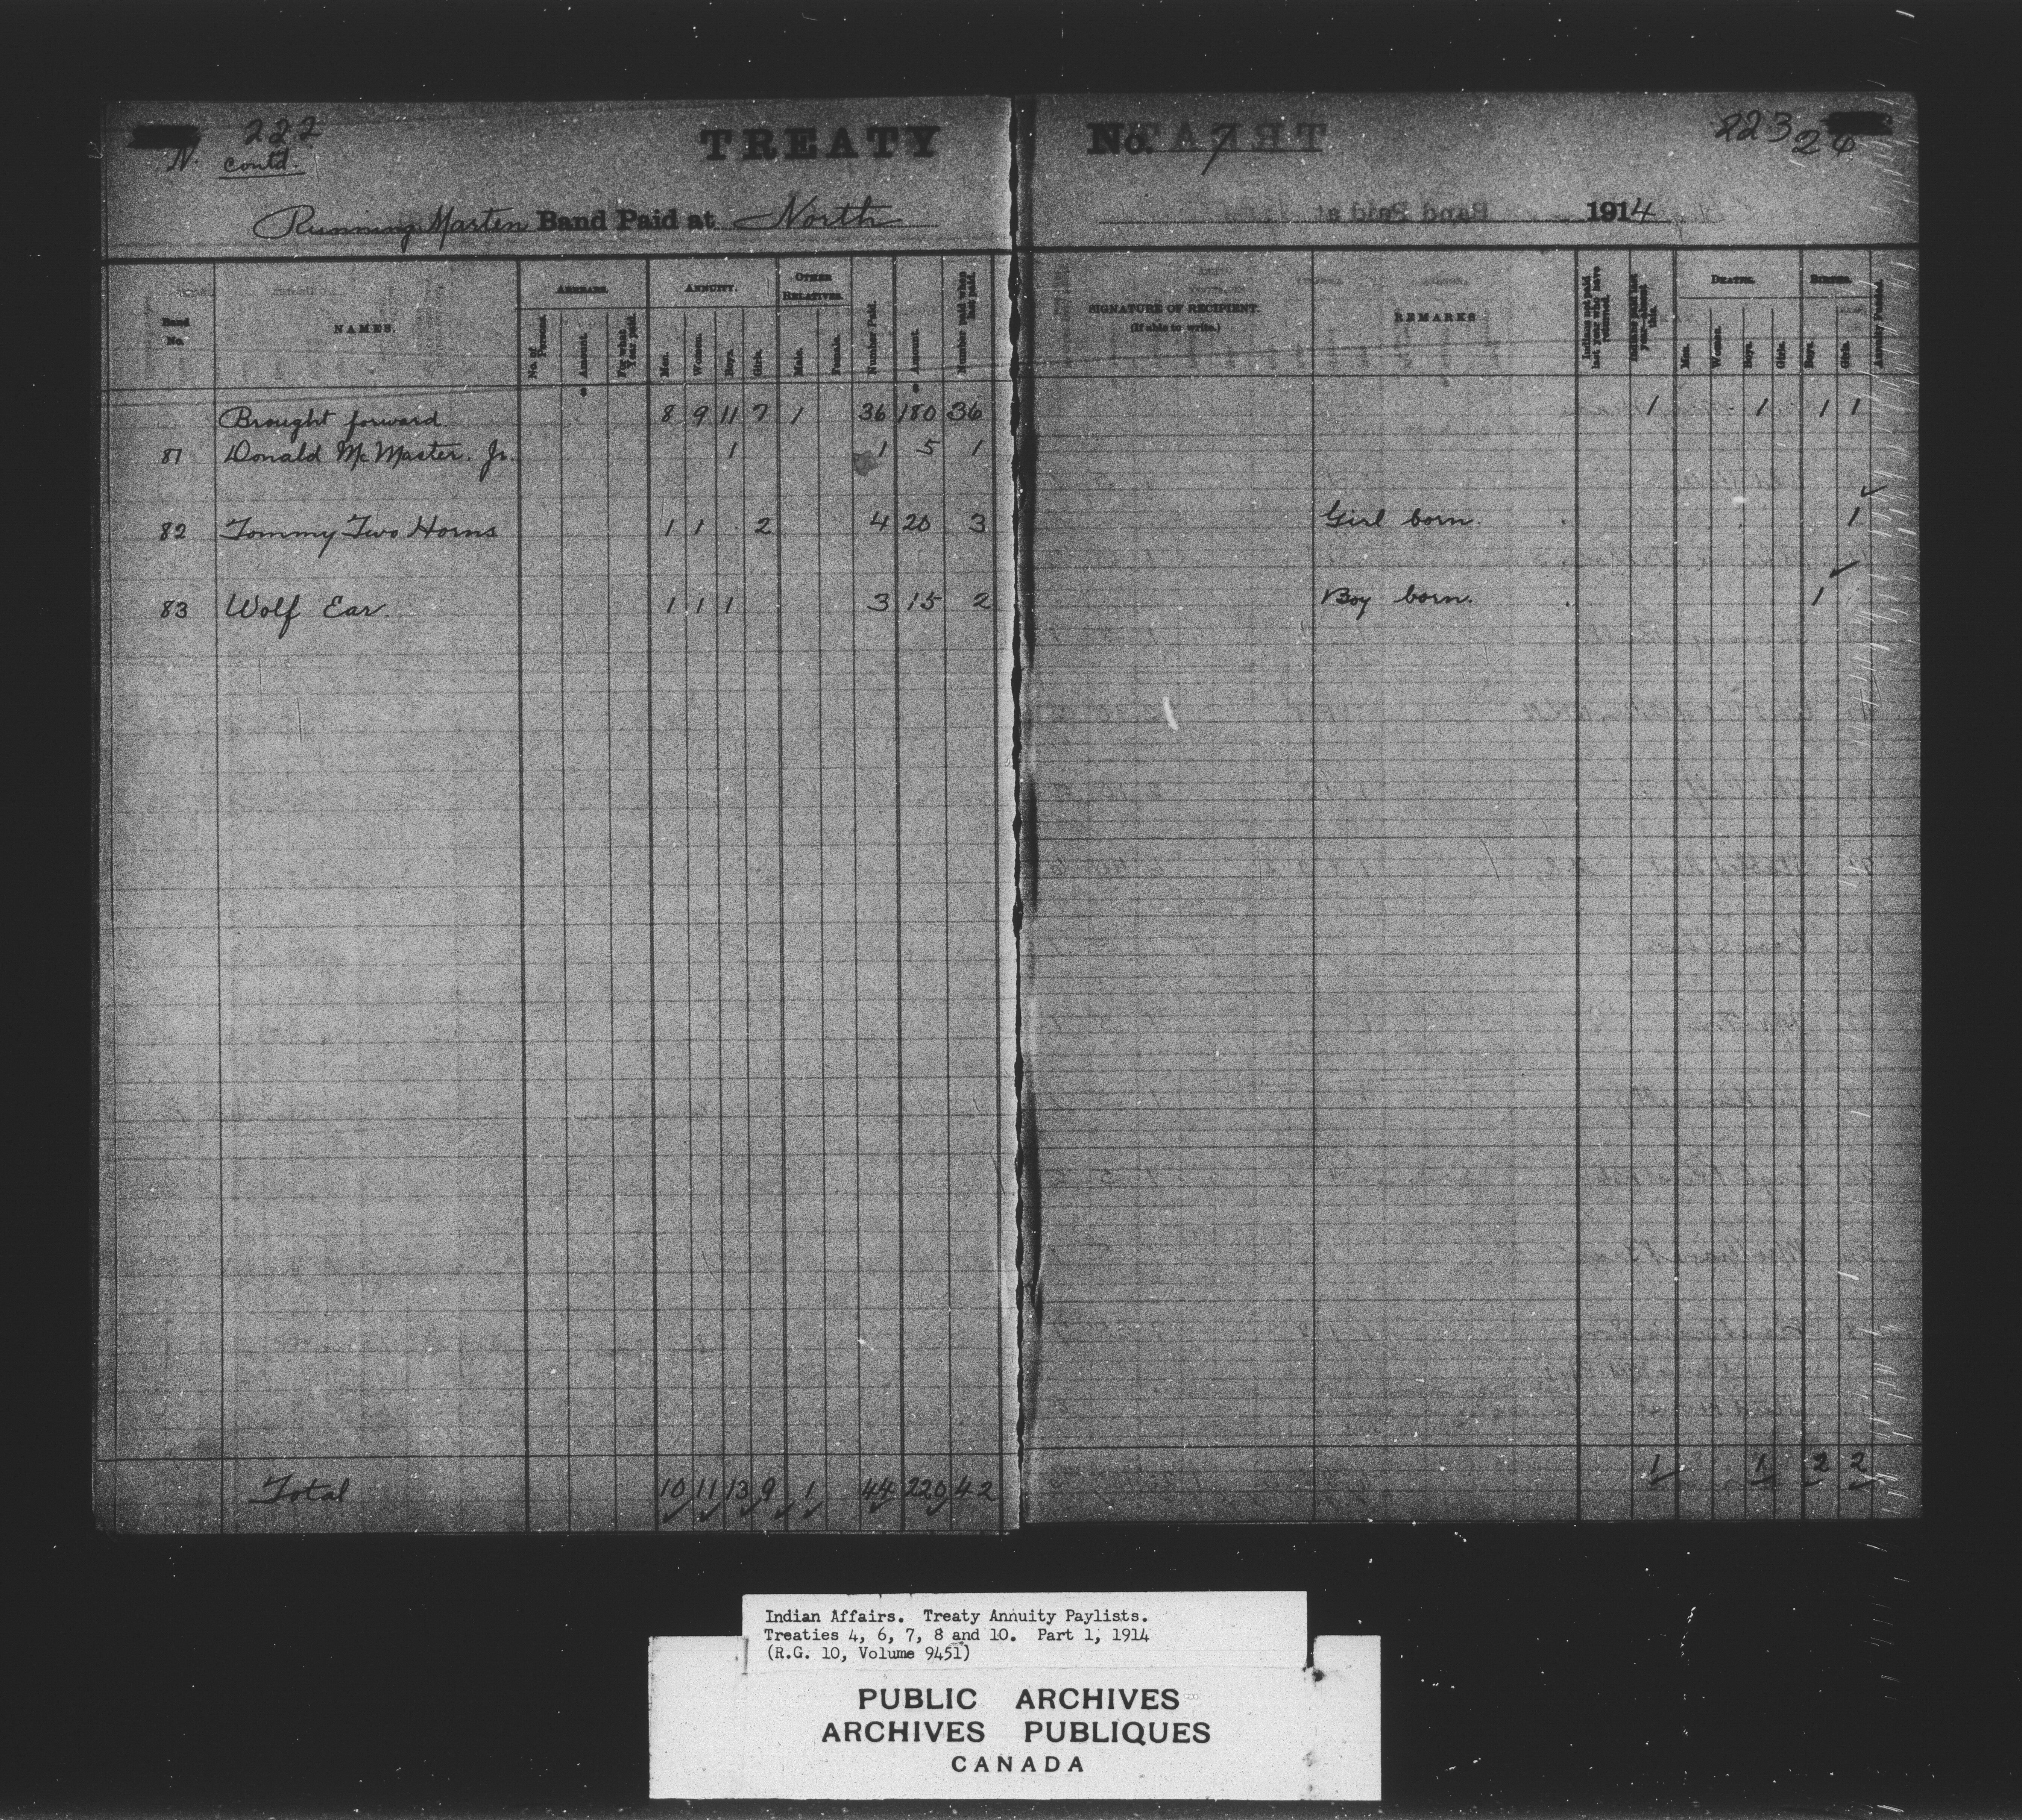 222
N. contd.
TREATY No. 7
223 26
Running Marten Band Paid at North 1914
Band No. NAMES. ARREARS. No. of Persons. Amount. For what Year paid. ANNUITY. Men. Women. Boys. Girls. OTHER RELATIVES. Male. Female. Number Paid. Amount. Number paid when last paid.
SIGNATURE OF RECIPIENT. (If able to write.) REMARKS Indians not paid last year who have returned. Indians paid last year—absent this. DEATHS. Men. Women. Boys. Girls. BIRTHS. Boys. Girls. Annuity Funded.
Brought forward 8 9 11 7 1 36 180 36 1 1 1 1
81 Donald McMaster. Jr. 1 1 5 1
82 Tommy Two Horns 1 1 2 4 20 3 Girl born. 1
83 Wolf Ear 1 1 1 3 15 2 Boy born. 1
Total 10 11 13 9 1 44 220 42 1 1 2 2
Indian Affairs. Treaty Annuity Paylists.
Treaties 4, 6, 7, 8 and 10. Part 1, 1914
(R.G. 10, Volume 9451)
PUBLIC ARCHIVES
ARCHIVES PUBLIQUES
CANADA